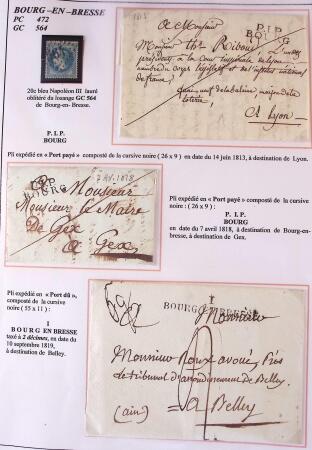 BOURG-EN-BRESSE
PC 472
GC 564
20c bleu Napoléon III lauré
oblitéré du losange GC 564
de Bourg-en-Bresse.
P. I. P.
BOURG
1813
a Monsieur
P.I.P
BOURG
Monsieur Th. Riboud
président a la Cour impériale de Lyon
membre du corps législatif et de l'institut
de france
quai neuf de la baleine maison de la
loterie
A Lyon
Pli expédié en « Port payé » composté de la cursive noire ( 26 x 9 ) en date du 14 juin 1813, à destination de Lyon.
P.I.P
BOURG
7 AV. 1818
a Monsieur
Monsieur le Maire
De Gex
a Gex
Pli expédié en « Port payé » composté de la cursive
noire : ( 26 x 9 ) :
P. I. P.
BOURG
en date du 7 avril 1818, à destination de Bourg-en-
bresse, à destination de Gex.
Pli expédié en « Port dû »,
composté de la cursive
noire ( 55 x 11 ) :
1
BOURG EN BRESSE
taxé à 2 décimes, en date du
10 septembre 1819,
à destination de Belley.
1
BOURG EN BRESSE
Monsieur
Monsieur Roux avoué, Près
le tribunal d'arrondissement de Belley.
(ain)
a Belley